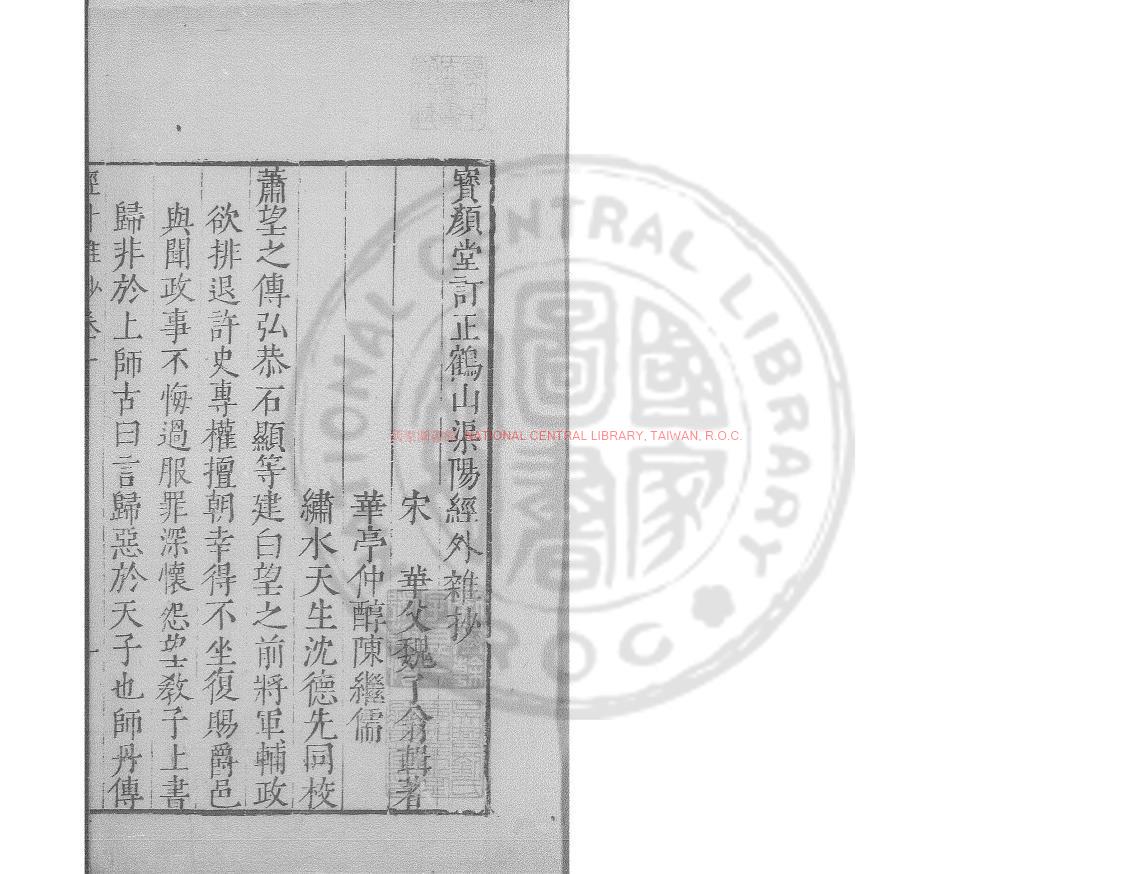 寳顏堂訂正鶴山渠陽經外雜抄
宋 華父魏了翁輯著
華亭仲醇陳繼儒
繡水天生沈德先同校
蕭望之傳弘恭石顯等建白望之前將軍輔政
欲排退許史專權擅朝幸得不坐復賜爵邑
與聞政事不悔過服罪深懷怨望教子上書
歸非於上師古曰言歸惡於天子也師丹傳
NATIONAL CENTRAL LIBRARY, TAIWAN, R.O.C.
NATIONAL CENTRAL LIBRARY
R.O.C
國家圖書